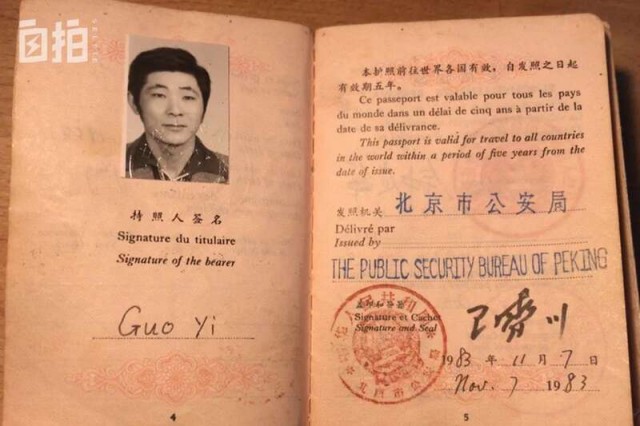 自拍
持照人签名
Signature du titulaire
Signature of the bearer
Guo Yi
4
本护照前往世界各国有效，自发照之日起
有效期五年。
Ce passeport est valable pour tous les pays
du monde dans un délai de cinq ans à partir de la
date de sa délivrance.
This passport is valid for travel to all countries
in the world within a period of five years from the
date of issue.
发照机关 北京市公安局
Délivré par
Issued by
THE PUBLIC SECURITY BUREAU OF PEKING
Signature et Cachet
Signature and Seal
1983 年 11 月 7 日
Nov. 7 1983
5